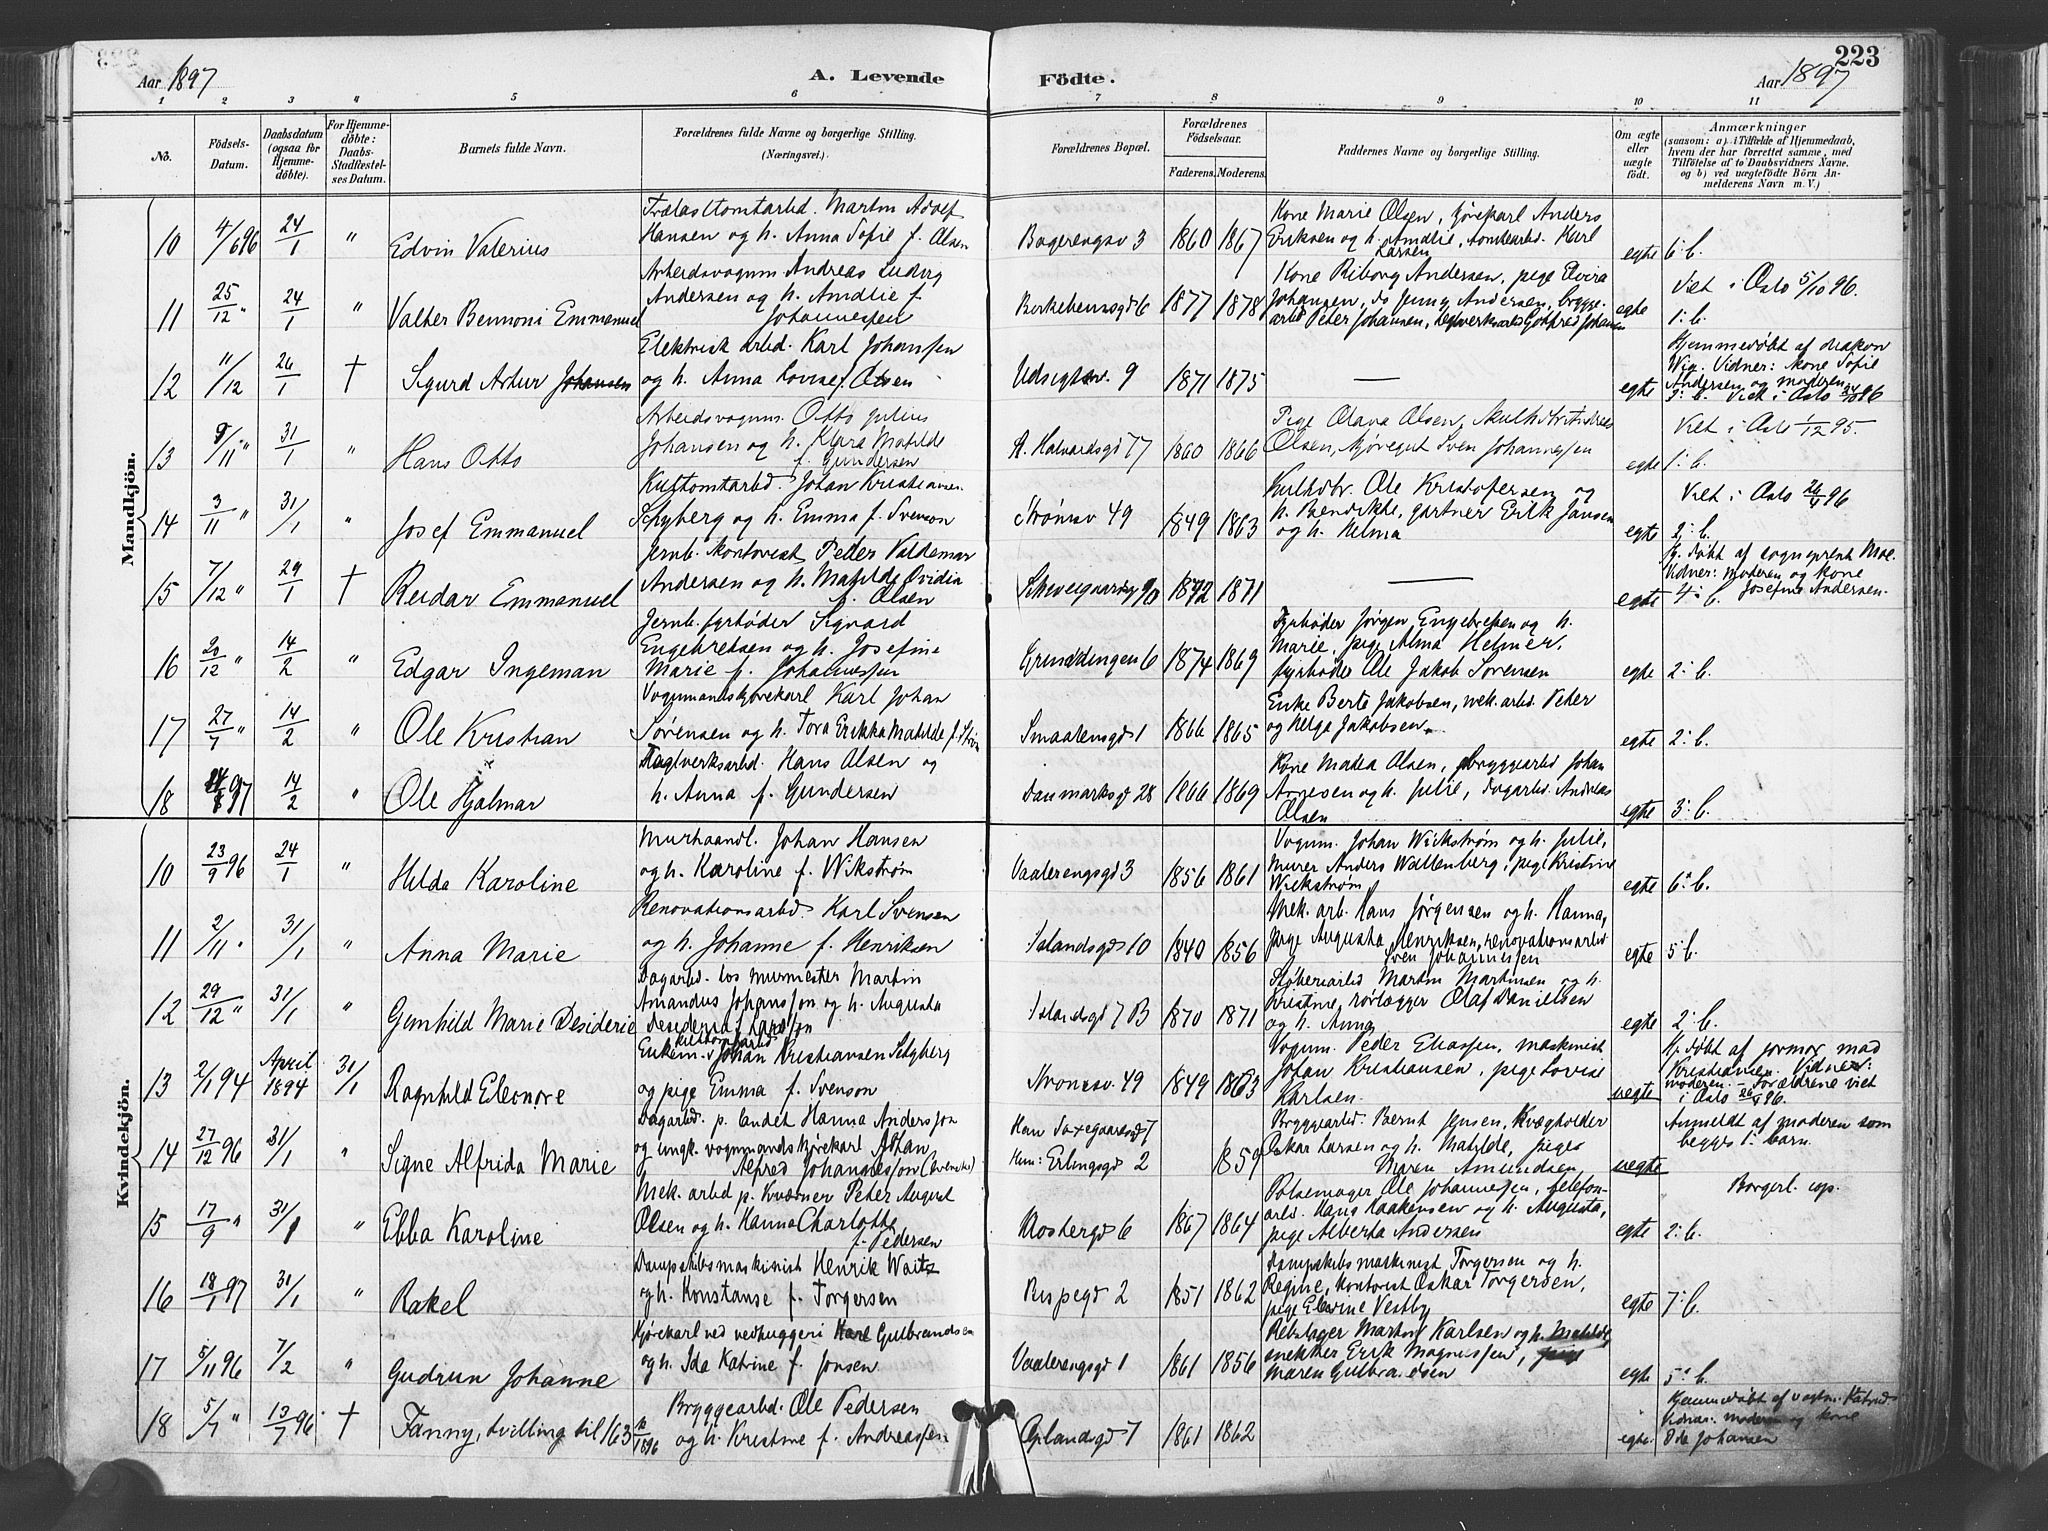 223
Aar 1897
A. Levende
Födte.
Aar 1897
1 2 3 " 5 6 7 8 9 10 11
No.
Födsels-Datum.
Daabsdatum (ogsaa for Hjemmedöbte).
For Hjemmedöbte: Daabs-Stadfæstelses Datum.
Barnets fulde Navn.
Forældrenes fulde Navne og borgerlige Stilling. (Næringsvei.)
Forældrenes Bopæl.
Forældrenes Födselsaar.
Faderens. Moderens.
Faddernes Navne og borgerlige Stilling.
Om ægte eller uægte födt.
Anmærkninger
(saasom: a) i Tilfælde af Hjemmedaab, hvem der har forrettet samme, med Tilföielse af to Daabsvidners Navne, og b) ved uægtefödte Börn Anmelderens Navn m. V.)
Mandkjön.
10 4/6 96 24/1 " Edvin Valerius
Trælasttomtarbd. Martin Adolf
Hansen og h. Anna Sofie f. Olsen
Bagerengsv 3 1860 1867
Kone Marie Olsen, kjørekarl Anders
Eriksen og h. Amalie, tomtearbd. Karl
Larsen
egte 6: b.
11 25/12 " 24/1 " Valter Bennoni Emmanuel
Arbeidsvognm. Andreas Ludvig
Andersen og h. Amalie f.
Johannessen
Birkebeinsgd 6 1877 1878
Kone Riborg Andersen, pige Elvira
Johansen, do Jenny Andersen, brygge-
arbd Peter Johansen, teglverksarbd Gotfred Johansen
egte 1: b.
Viet i Oslo 5/10 96.
12 11/12 26/1 † Sigurd Artur Johansen
Elektrisk arbd. Karl Johanssen
og h. Anna Lovise f. Olsen
Udsigtsv. 9 1871 1875 —
egte
Hjemmedøbt af diakon
Wig. Vidner: kone Sofie
Andersen og moderen
Viet i Oslo 24/10 96
13 9/11 " 31/1 " Hans Otto
Arbeidsvognm. Otto Julius
Johansen og h. Klara Matilde
f. Gundersen
St. Halvardsgd 77 1860 1866
Pige Olava Olsen,
Olsen, kjøregut Sven Johannessen
egte 1: b.
Viet i Oslo 1/12 95.
14 3/11 " 31/1 " Josef Emmanuel
Kultomtarbd. Johan Kristiansen
og h. Emma f. Svenson
Strømsv 49 1849 1863
Ole Kristofersen og
h. Bendikte, gartner Erik Jansen
og h. Helma
egte 2: b.
Viet i Oslo 26/4 96
15 7/12 " 29/1 † Reidar Emmanuel
Jernb. kontorist Peder Valdemar
Andersen og h. Matilde Ovidia
f. Olsen
Schweigaardsg 90 1872 1871 —
egte 4: b.
Hj. døbt af sogneprest Moe.
Vidner: moderen og kone
Josefine Andersen.
16 20/12 " 14/2 " Edgar Ingeman
Jernb. fyrbøder Sigvard
Engebretsen og h. Josefine
Marie f. Johannessen
Grünebregen 6 1874 1869
Fyrbøder Jørgen Engebretsen og h.
Marie, pige Alma Helmer,
fyrbøder Ole Jakob Sørensen
egte 2: b.
17 27/7 " 14/2 " Ole Kristian
Vognmandskjørekarl Karl Johan
Sørensen og h. Tora Erikka Matilde f.
Smaalensgd 1 1866 1865
Enke Berte Jakobsen, mek. arbd. Peter
og Helga Jakobsen.
egte 2: b.
18 97 14/2 " Ole Hjalmar
Teglverksarbd. Hans Olsen og
h. Anna f. Gundersen
Danmarksgd 28 1866 1869
Kone Matea Olsen, bryggearbd Johan
Arnesen og h. Julie, dagarbd. Andreas
Olsen
egte 3: b.
Kvindekjön.
10 23/9 96 24/1 " Hilda Karoline
Murhaandl. Johan Hansen
og h. Karoline f. Wikstrøm
Vaalerengsgd 3 1856 1861
Vognm. Johan Wickstrøm og h. Julie,
murer Anders Wallenberg, pige Kristine
Wickstrøm
egte 6: b.
11 2/11 " 31/1 " Anna Marie
Renovationsarbd. Karl Svensen
og h. Johanne f. Henriksen
Islandsgd 10 1840 1856
Mek. arb. Hans Jørgensen og h. Hanna,
pige Augusta Henriksen, renovationsarbd
Sven Johannessen
egte 5: b.
12 29/12 " 31/1 " Gunhild Marie Desiderie
Dagarbd. hos murmester Martin
Amandus Johansson og h. Augusta
Desideria f. Larsson
Islandsgd 7 B 1870 1871
Støberiarbd Martin Martinsen og h.
Kristine, rørlægger Olaf Danielsen
og h. Anna
egte 2: b.
13 2/1 94 April 1894 31/1 Ragnhild Eleonore
Enkem. kultomtarbd Johan Kristiansen
og pige Emma f. Svenson
Strømsv 49 1849 1863
Vognm. Peder Eliassen, maskinist
Johan Kristiansen, pige Lovise
Karlsen
uegte
Hj. døbt af jormor mad
Kristiansen. Vidner:
moderen. – Forældrene viet
i Oslo 26/4 96.
14 27/12 96 31/1 " Signe Alfrida Marie
Dagarbd. p. landet Hanna Andersson
og ungk. vognmandskjørekarl Johan
Alfred Johannesson (Svenske)
Ham Saxegaardsgd 7
Hun: Erlingsgd 2 1859
Bryggearbd. Bernt Jensen, Kvægholder
Oskar Larsen og h. Matilde, piges
Maren Amundsen
uegte
Anmeldt af moderen som
begges 1: barn.
15 17/9 " 31/1 " Ebba Karoline
Mek. arbd p. Kværner Peter August
Olsen og h. Hanna Charlotte
f. Pedersen
Klostergd 6 1867 1864
Pølsemager Ole Johannessen, telefon-
arbd. Hans Haakensen og h. Augusta,
pige Alberta Andersen
egte 2: b.
Borgerl. cop.
16 18/1 97 31/1 " Rakel
Dampskibsmaskinist Henrik Waitz
og h. Konstanse f. Torgersen
Bispegd 2 1851 1862
Dampskibsmaskinist Torgersen og h.
Regine, kontorist Oskar Torgersen,
pige Elevine Vestby
egte 7: b.
17 5/11 96 7/2 " Gudrun Johanne
Kjørekarl ved vedhuggeri Karl Gulbrandsen
og h. Ida Katrine f. Jensen
Vaalerengsgd 1 1861 1856
Rebslager Martin Karlsen og h. Matilde
snekker Erik Magnussen,
Maren Gulbrandsen
egte 5: b.
18 5/7 " 13/7 96 † Fanny, tvilling til 163 1896
Bryggearbd. Ole Pedersen
og h. Kristine f. Andreassen
Oplandsgd 7 1861 1862
egte.
Hjemmedøbt af
Vidner: moderen og kone
Oda Johansen